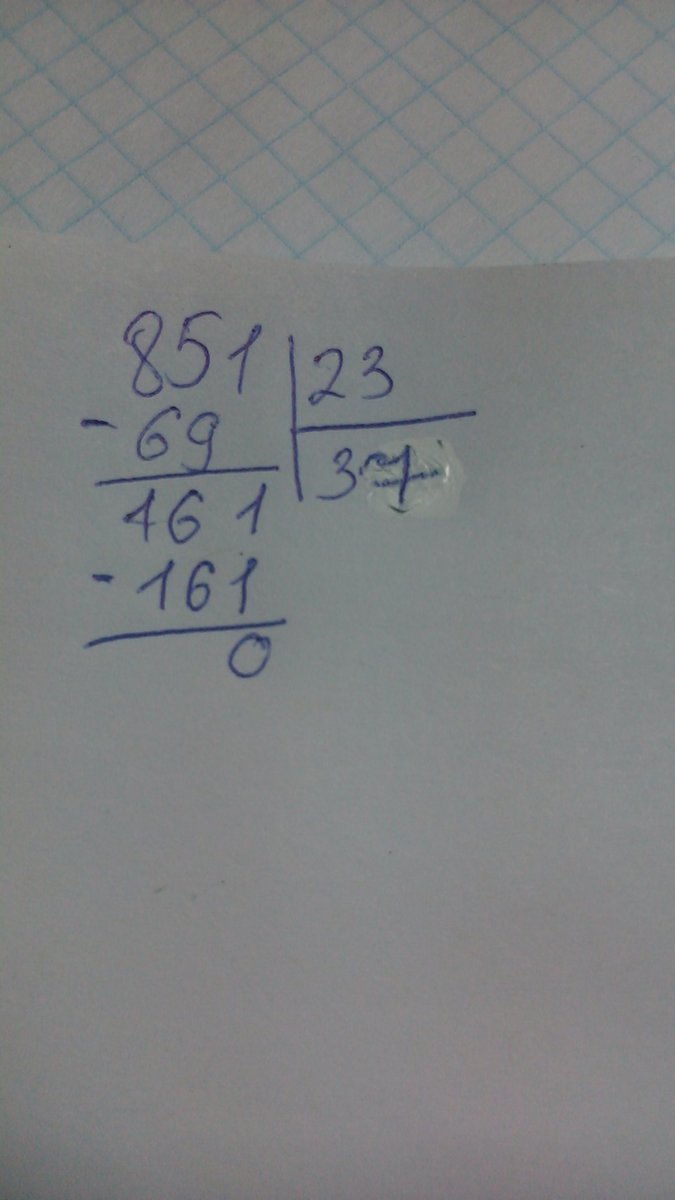 851 | 23
- 69
37
161
- 161
0